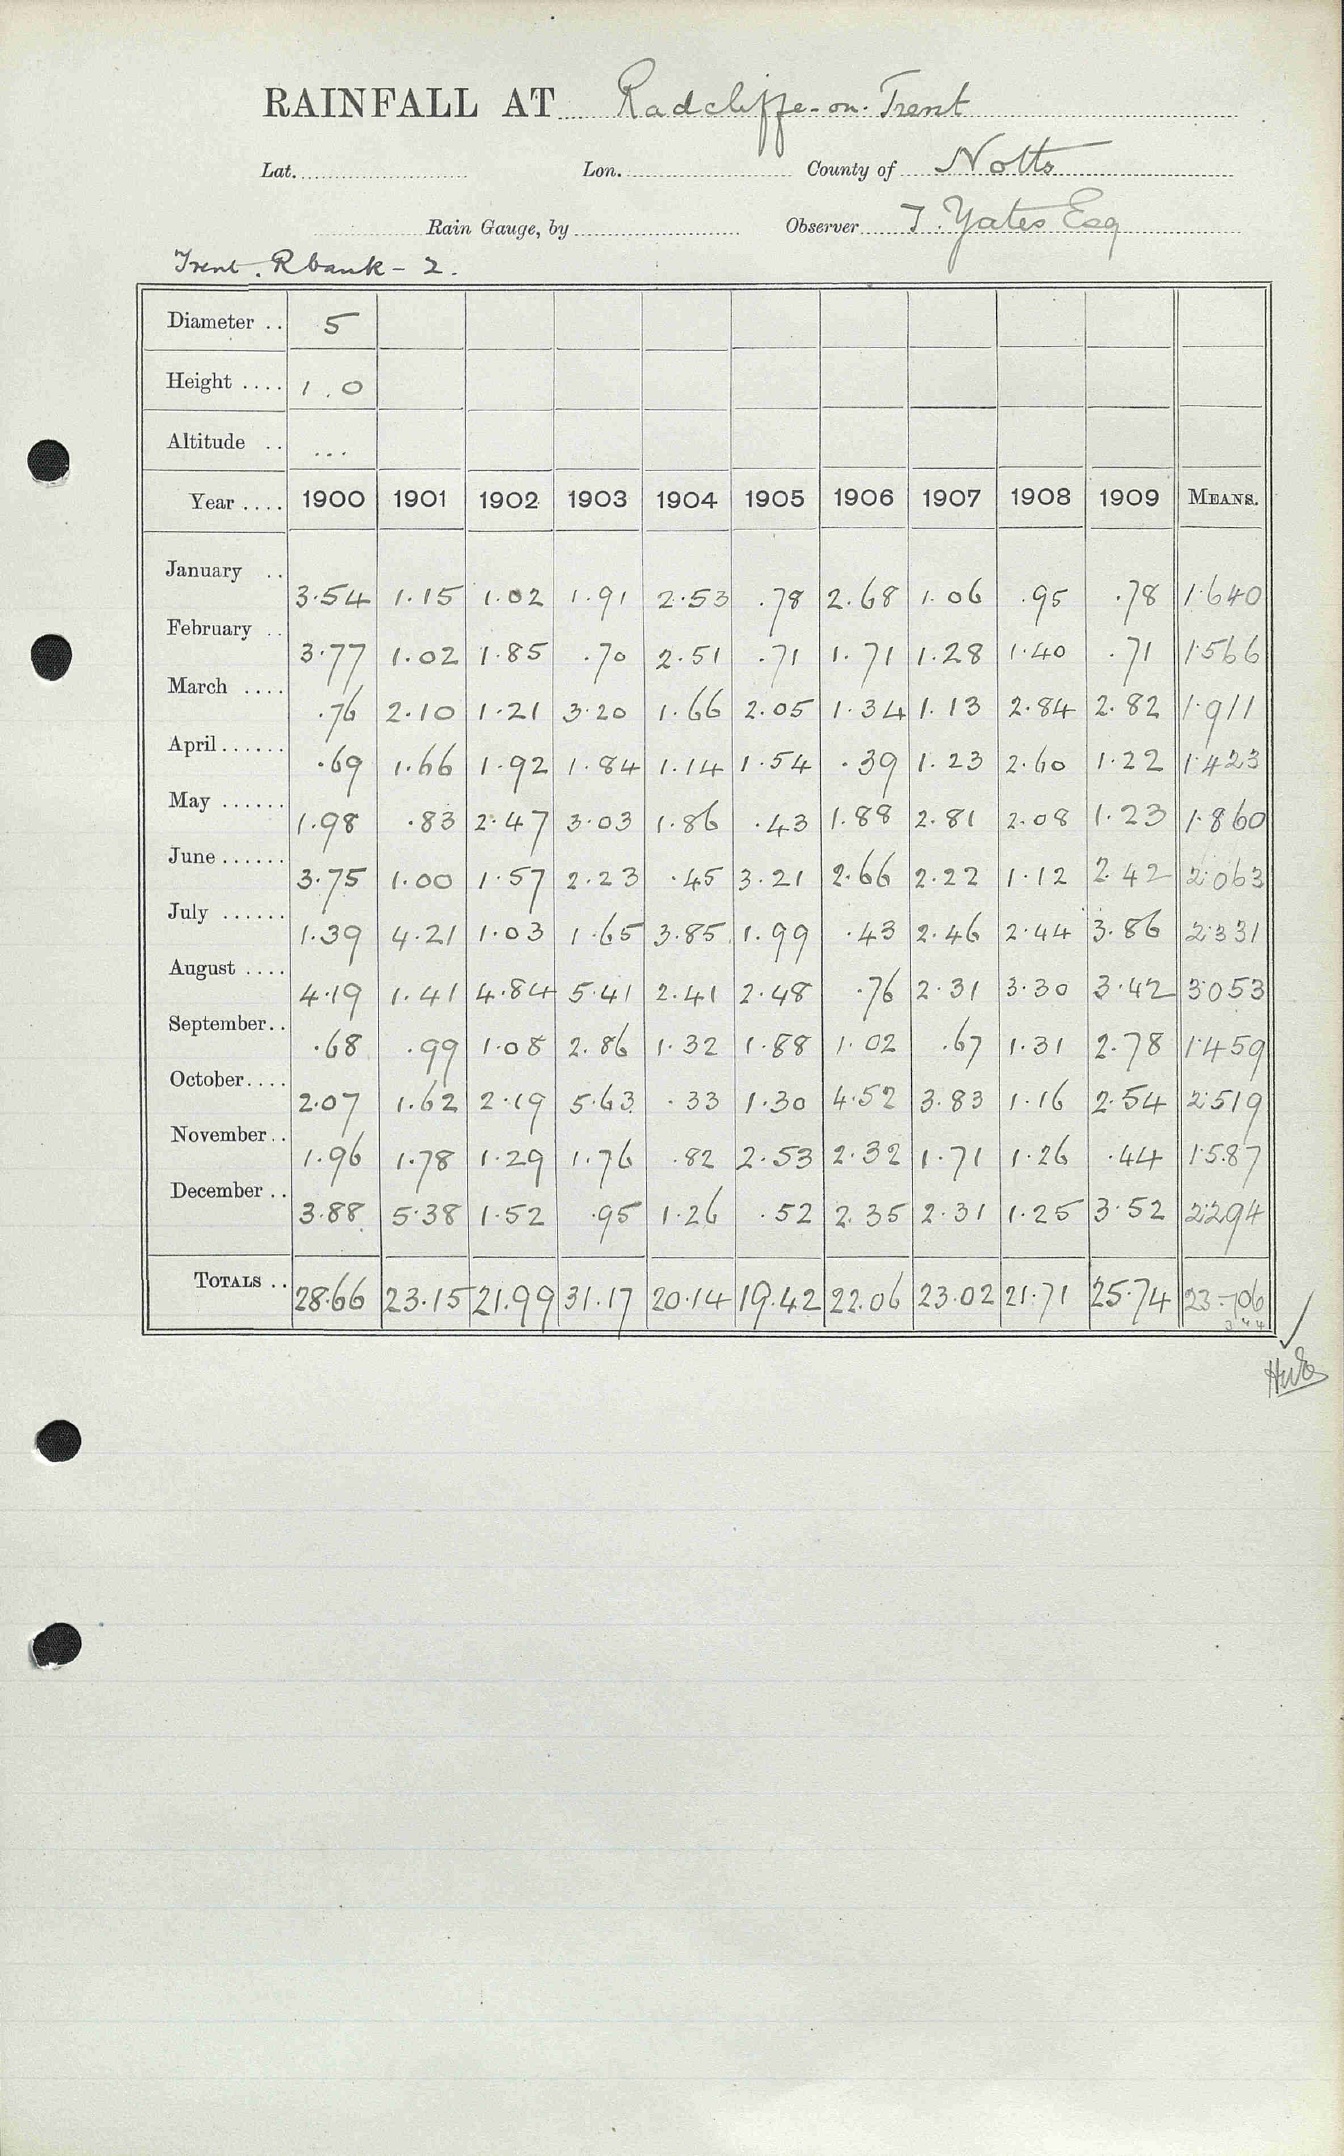 RAINFALL AT Radcliffe-on-Trent
Lat. Lon. County of Notts
Rain Gauge, by Observer T. Yates Esq
Trent. R bank - 2.
Diameter .. 5
Height .... 1.0
Altitude .. ...
Year .... 1900 1901 1902 1903 1904 1905 1906 1907 1908 1909 MEANS.
January .. 3.54 1.15 1.02 1.91 2.53 .78 2.68 1.06 .95 .78 1.640
February .. 3.77 1.02 1.85 .70 2.51 .71 1.71 1.28 1.40 .71 1.566
March .... .76 2.10 1.21 3.20 1.66 2.05 1.34 1.13 2.84 2.82 1.911
April ...... .69 1.66 1.92 1.84 1.14 1.54 .39 1.23 2.60 1.22 1.423
May ...... 1.98 .83 2.47 3.03 1.86 .43 1.88 2.81 2.08 1.23 1.860
June ...... 3.75 1.00 1.57 2.23 .45 3.21 2.66 2.22 1.12 2.42 2.063
July ...... 1.39 4.21 1.03 1.65 3.85 1.99 .43 2.46 2.44 3.86 2.331
August .... 4.19 1.41 4.84 5.41 2.41 2.48 .76 2.31 3.30 3.42 3.053
September .. .68 .99 1.08 2.86 1.32 1.88 1.02 .67 1.31 2.78 1.459
October .... 2.07 1.62 2.19 5.63 .33 1.30 4.52 3.83 1.16 2.54 2.519
November .. 1.96 1.78 1.29 1.76 .82 2.53 2.32 1.71 1.26 .44 1.587
December .. 3.88 5.38 1.52 .95 1.26 .52 2.35 2.31 1.25 3.52 2.294
TOTALS .. 28.66 23.15 21.99 31.17 20.14 19.42 22.06 23.02 21.71 25.74 23.706